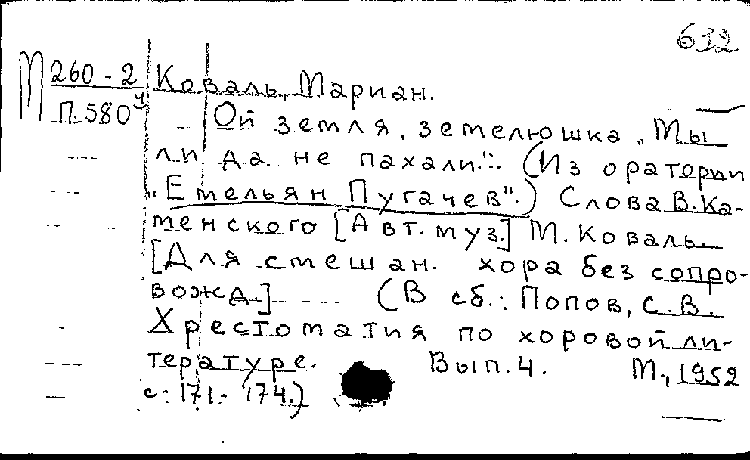 632
М 260-2 Коваль, Мариан.
П 580 Ой земля, земелюшка, "Мы
ли да не пахали". (Из оратории
"Емельян Пугачев".) Слова В. Ка-
менского [Авт. муз.] М. Коваль
[Для смешан. хора без сопро-
вожд.] (В сб.: Попов, С. В.
Хрестоматия по хоровой ли-
тературе. Вып. 4. М., 1952
с. 171-174.)